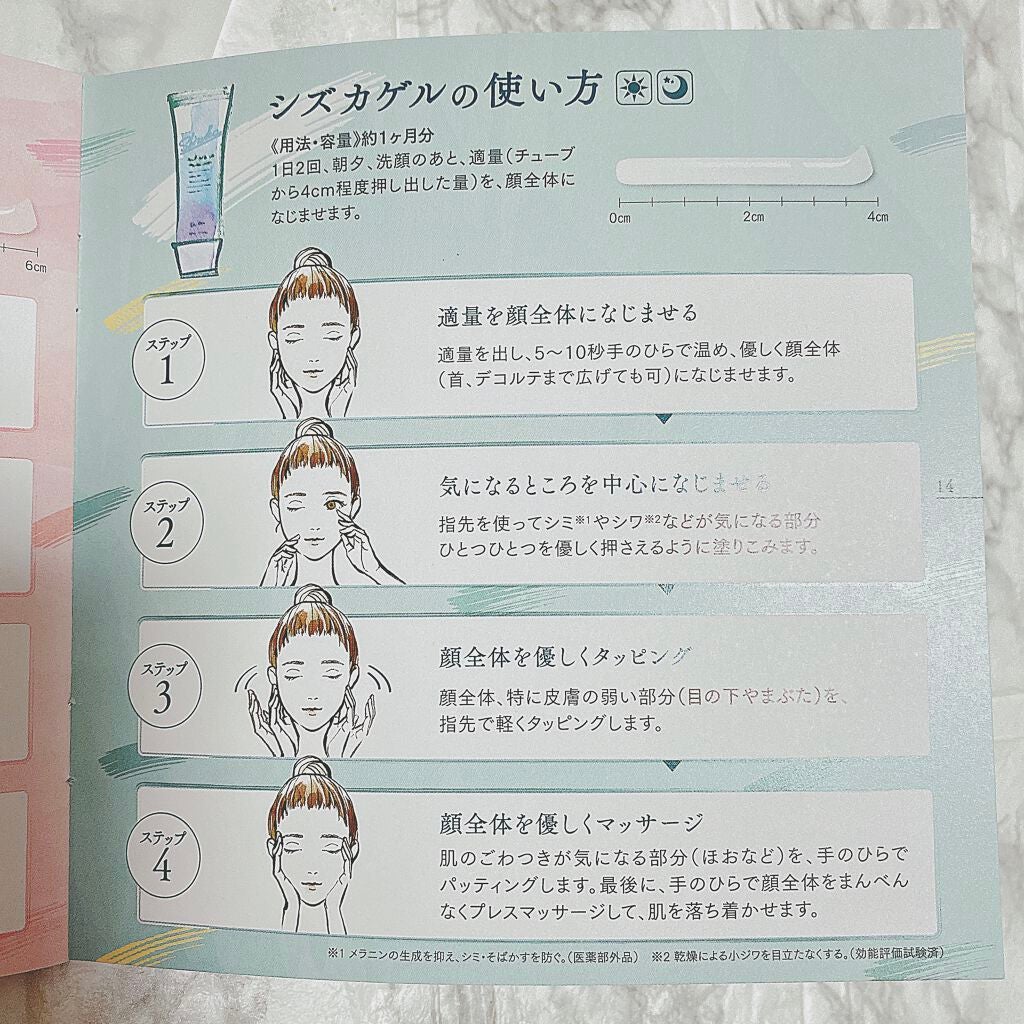 シズカゲルの使い方
《用法・容量》約1ヶ月分
1日2回、朝夕、洗顔のあと、適量（チューブ
から4cm程度押し出した量）を、顔全体に
なじませます。
0cm
2cm
4cm
6cm
ステップ
1
適量を顔全体になじませる
適量を出し、5〜10秒手のひらで温め、優しく顔全体
（首、デコルテまで広げても可）になじませます。
ステップ
2
気になるところを中心になじませる
指先を使ってシミ※1やシワ※2などが気になる部分
ひとつひとつを優しく押さえるように塗りこみます。
14
ステップ
3
顔全体を優しくタッピング
顔全体、特に皮膚の弱い部分（目の下やまぶた）を、
指先で軽くタッピングします。
ステップ
4
顔全体を優しくマッサージ
肌のごわつきが気になる部分（ほおなど）を、手のひらで
パッティングします。最後に、手のひらで顔全体をまんべん
なくプレスマッサージして、肌を落ち着かせます。
※1 メラニンの生成を抑え、シミ・そばかすを防ぐ。（医薬部外品） ※2 乾燥による小ジワを目立たなくする。（効能評価試験済）